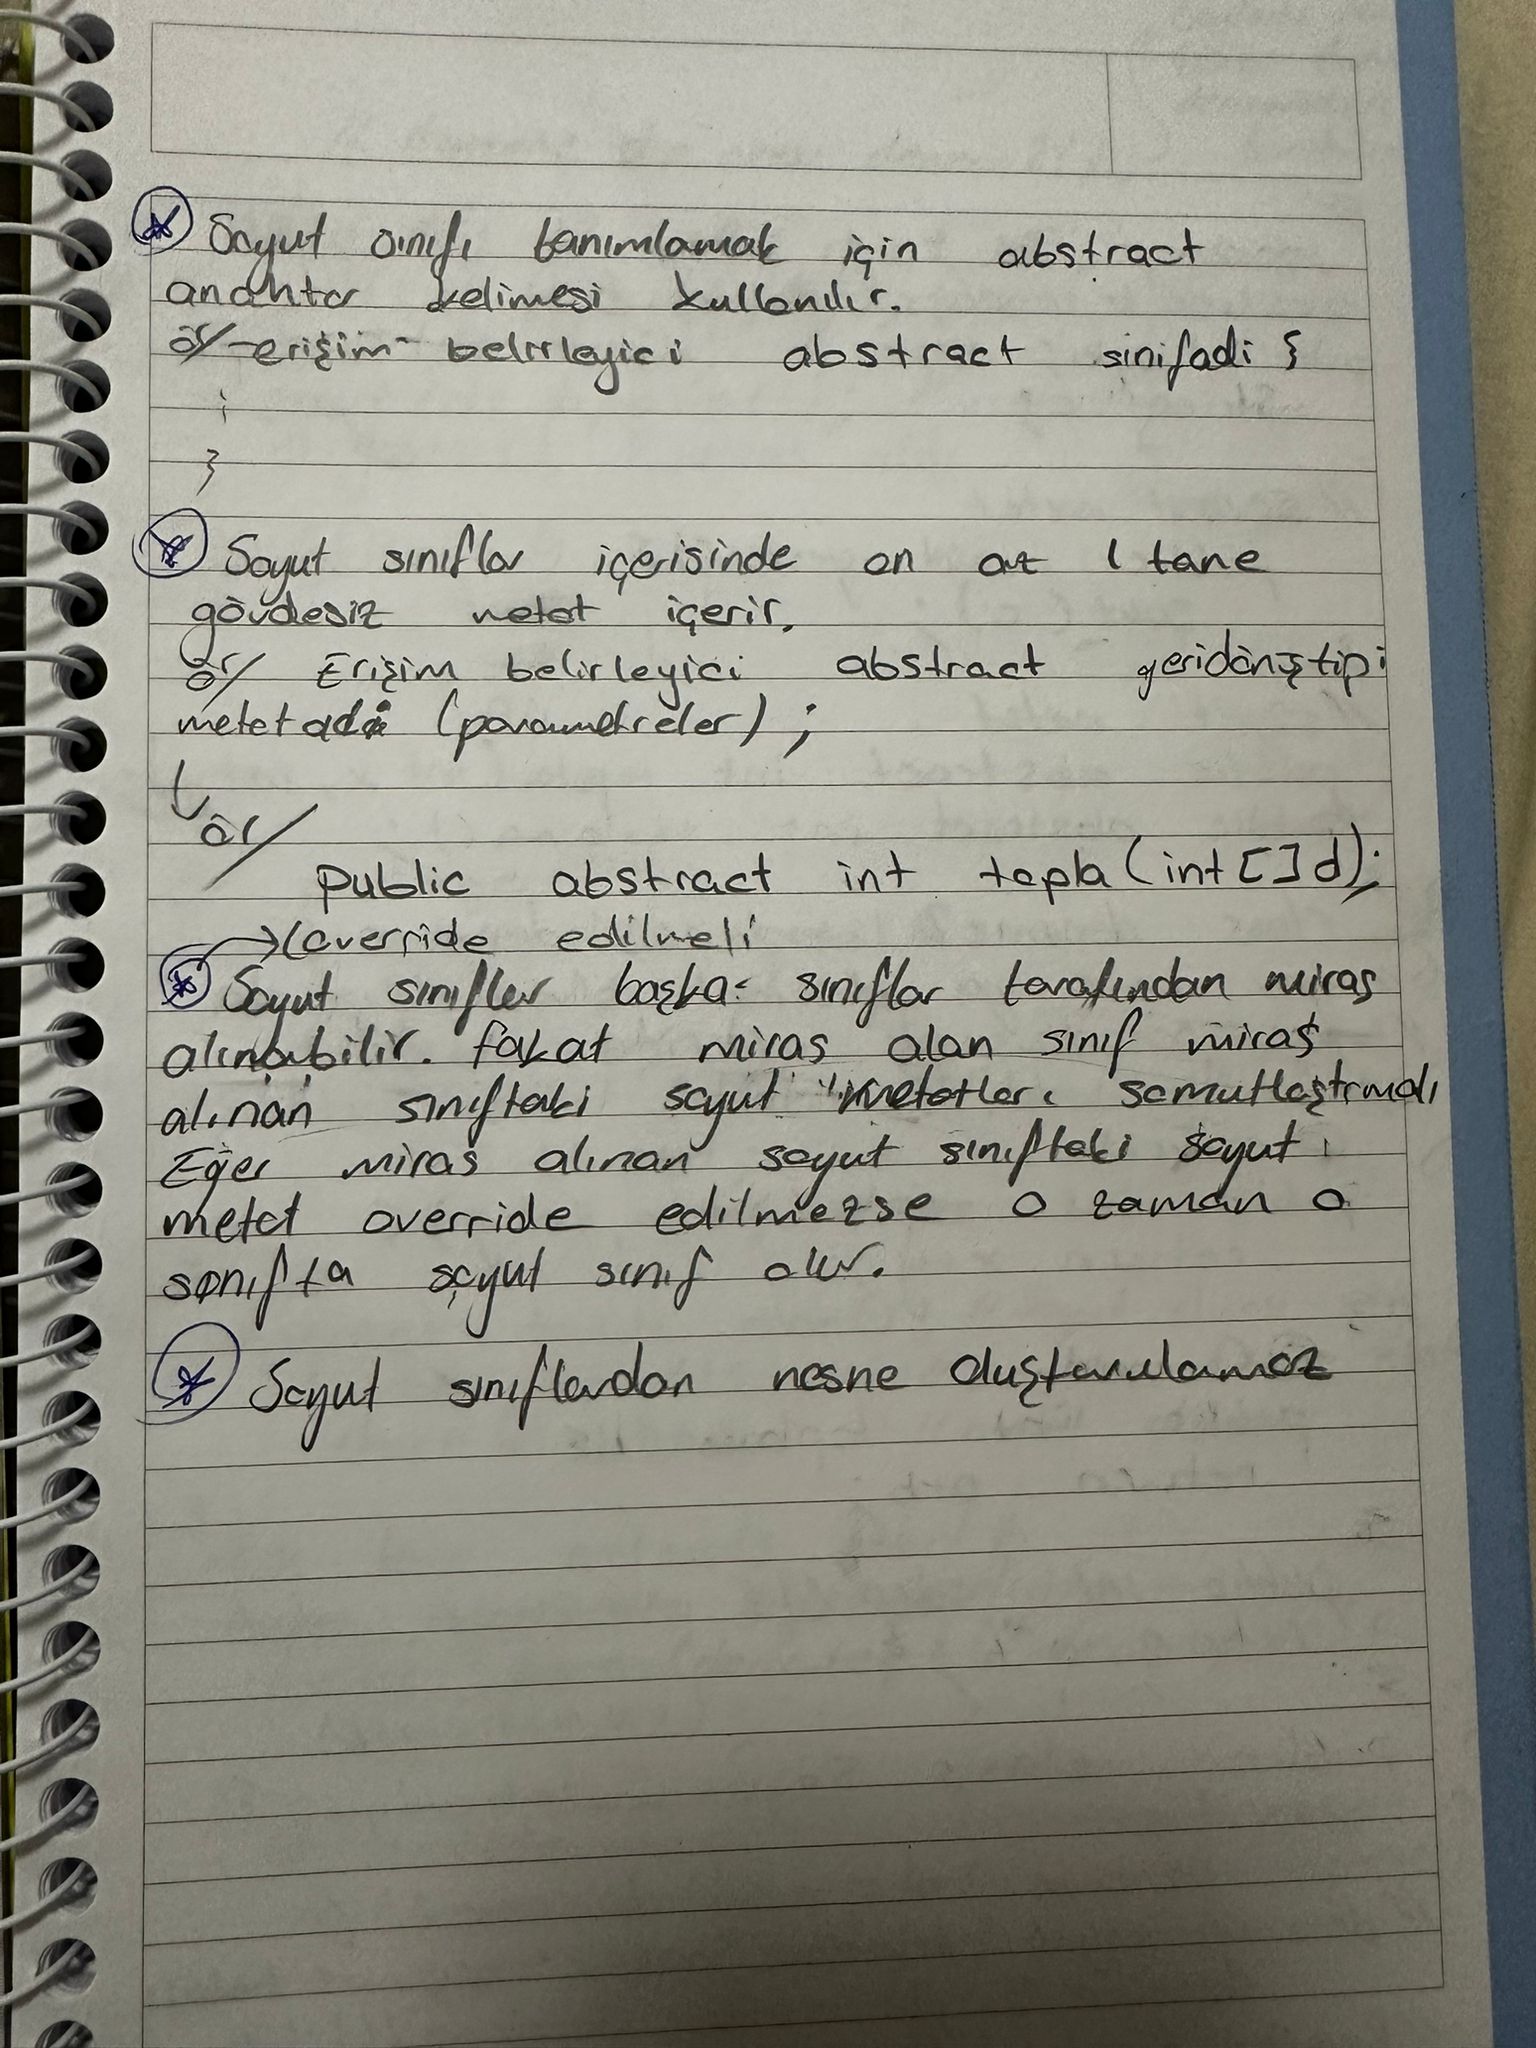 Soyut sınıfı tanımlamak için abstract
anahtar kelimesi kullanılır.
ör/ erişim belirleyici abstract sinifadi {
⋮
}
Soyut sınıflar içerisinde en az 1 tane
gövdesiz metot içerir.
ör/ Erişim belirleyici abstract geridönüştipi
metot adı (parametreler) ;
↳ ör/
public abstract int topla (int [] d);
→ (override edilmeli
Soyut sınıflar başka sınıflar tarafından miras
alınabilir. fakat miras alan sınıf miras
alınan sınıftaki soyut metotları somutlaştırmalı
Eğer miras alınan soyut sınıftaki soyut
metot override edilmezse o zaman o
sınıfta soyut sınıf olur.
Soyut sınıflardan nesne oluşturulamaz